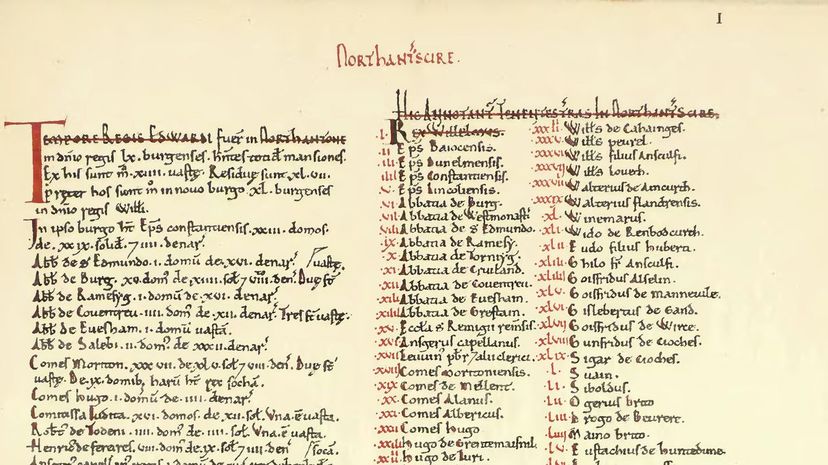 I
Northantscire.
Tempore Regis Edwardi fuer̄ in Northantone
in dn̄io regis lx. burgenses. hn̄tes totid̄ mansiones.
Ex his sunt m̄ .xiiii. uastę. Residuę sunt .xl.vii.
Preter hos sunt m̄ in nouo burgo .xl. burgenses
in dn̄io regis Willi.
In ipso burgo hт̄ Ep̄s constantiensis .xxiii. domos.
de .xxix. solid̄ .⁊ iiii. denar̄.
Abb̄ de S Edmundo .i. domū de .xvi. denar̄.
uastę.
Abb̄ de Burg .xv. dom̄ de .xiiii. sol̄ ⁊ viii. den̄. Duę sт̄
Abb̄ de Ramesyg .i. domū de .xvi. denar̄.
Abb̄ de Couentreu .iiii. dom̄ de .xii. denar̄. Tres sт̄ uastę.
Abb̄ de Euesham .i. domū uastā.
Abb̄ de Salebi .ii. dom̄ de .xxxii. denar̄.
Comes Moriton .xxx vii. de .xl.v. sol̄ ⁊ viii. den̄. Duę sт̄
uastę. De .ix. domib; harū hт̄ rex sochā.
Comes hugo .i. domū de .iiii. denar̄.
Comitissa Iudita .xvi. domos. de .xii. sol̄. Vna .ē uasta.
Rotb̄ de Todeni .iiii. dom̄ de .iiii. sol̄. Vna .ē uasta.
Henric de ferares .viii. dom̄ de .ix. sol̄ ⁊ iiii. den̄
socā.
Hic Annotant̄ Tenentes t̄ras In Northantscire.
.I. Rex Willelmus.
.II. Ep̄s Baiocensis.
.III. Ep̄s Dunelmensis.
.IIII. Ep̄s Constantiensis.
.V. Ep̄s Lincoliensis.
.VI. Abbatia de Burg.
.VII. Abbatia de Westmonast̄
.VIII. Abbatia de S Edmundo.
.IX. Abbatia de Ramesy.
.X. Abbatia de Torniyg.
.XI. Abbatia de Cruiland.
.XII. Abbatia de Couentreu.
.XIII. Abbatia de Euesham.
.XIIII. Abbatia de Grestain.
.XV. Eccl̄a S Remigii remsis.
.XVI. Ansgerus capellanus.
.XVII. Leuuin pb̄r ⁊ alii clerici.
.XVIII. Comes Moritoniensis.
.XIX. Comes de Mellent.
.XX. Comes Alanus.
.XXI. Comes Albericus.
.XXII. Comes hugo
.XXIII. hugo de Grentemaisnil.
.XXIIII. hugo de Iuri.
Will̄s de Cahainges.
Will̄s peurel.
Will̄s filius Ansculfi.
Will̄s louech.
Walterius de Aincurth.
Walterius flandrensis.
.XL. Winemarus.
.XLI. Wido de Renbodcurth.
.XLII. Eudo filius huberti.
.XLIII. Ghilo fr̄ Ansculfi.
.XLIIII. Goisfridus Alselin.
.XLV. Goisfridus de manneuile.
.XLVI. Gislebertus de Gand.
.XLVII. Goisfridus de Wirce.
.XLVIII. Gunfridus de Cioches.
.XLIX. Sigar de Cioches.
.L. Suain.
.LI. Siboldus.
.LII. Ogerius brito
.LIII. Drogo de Beureet.
.LIIII. Maino brito.
.LV. Eustachius de huntedune.